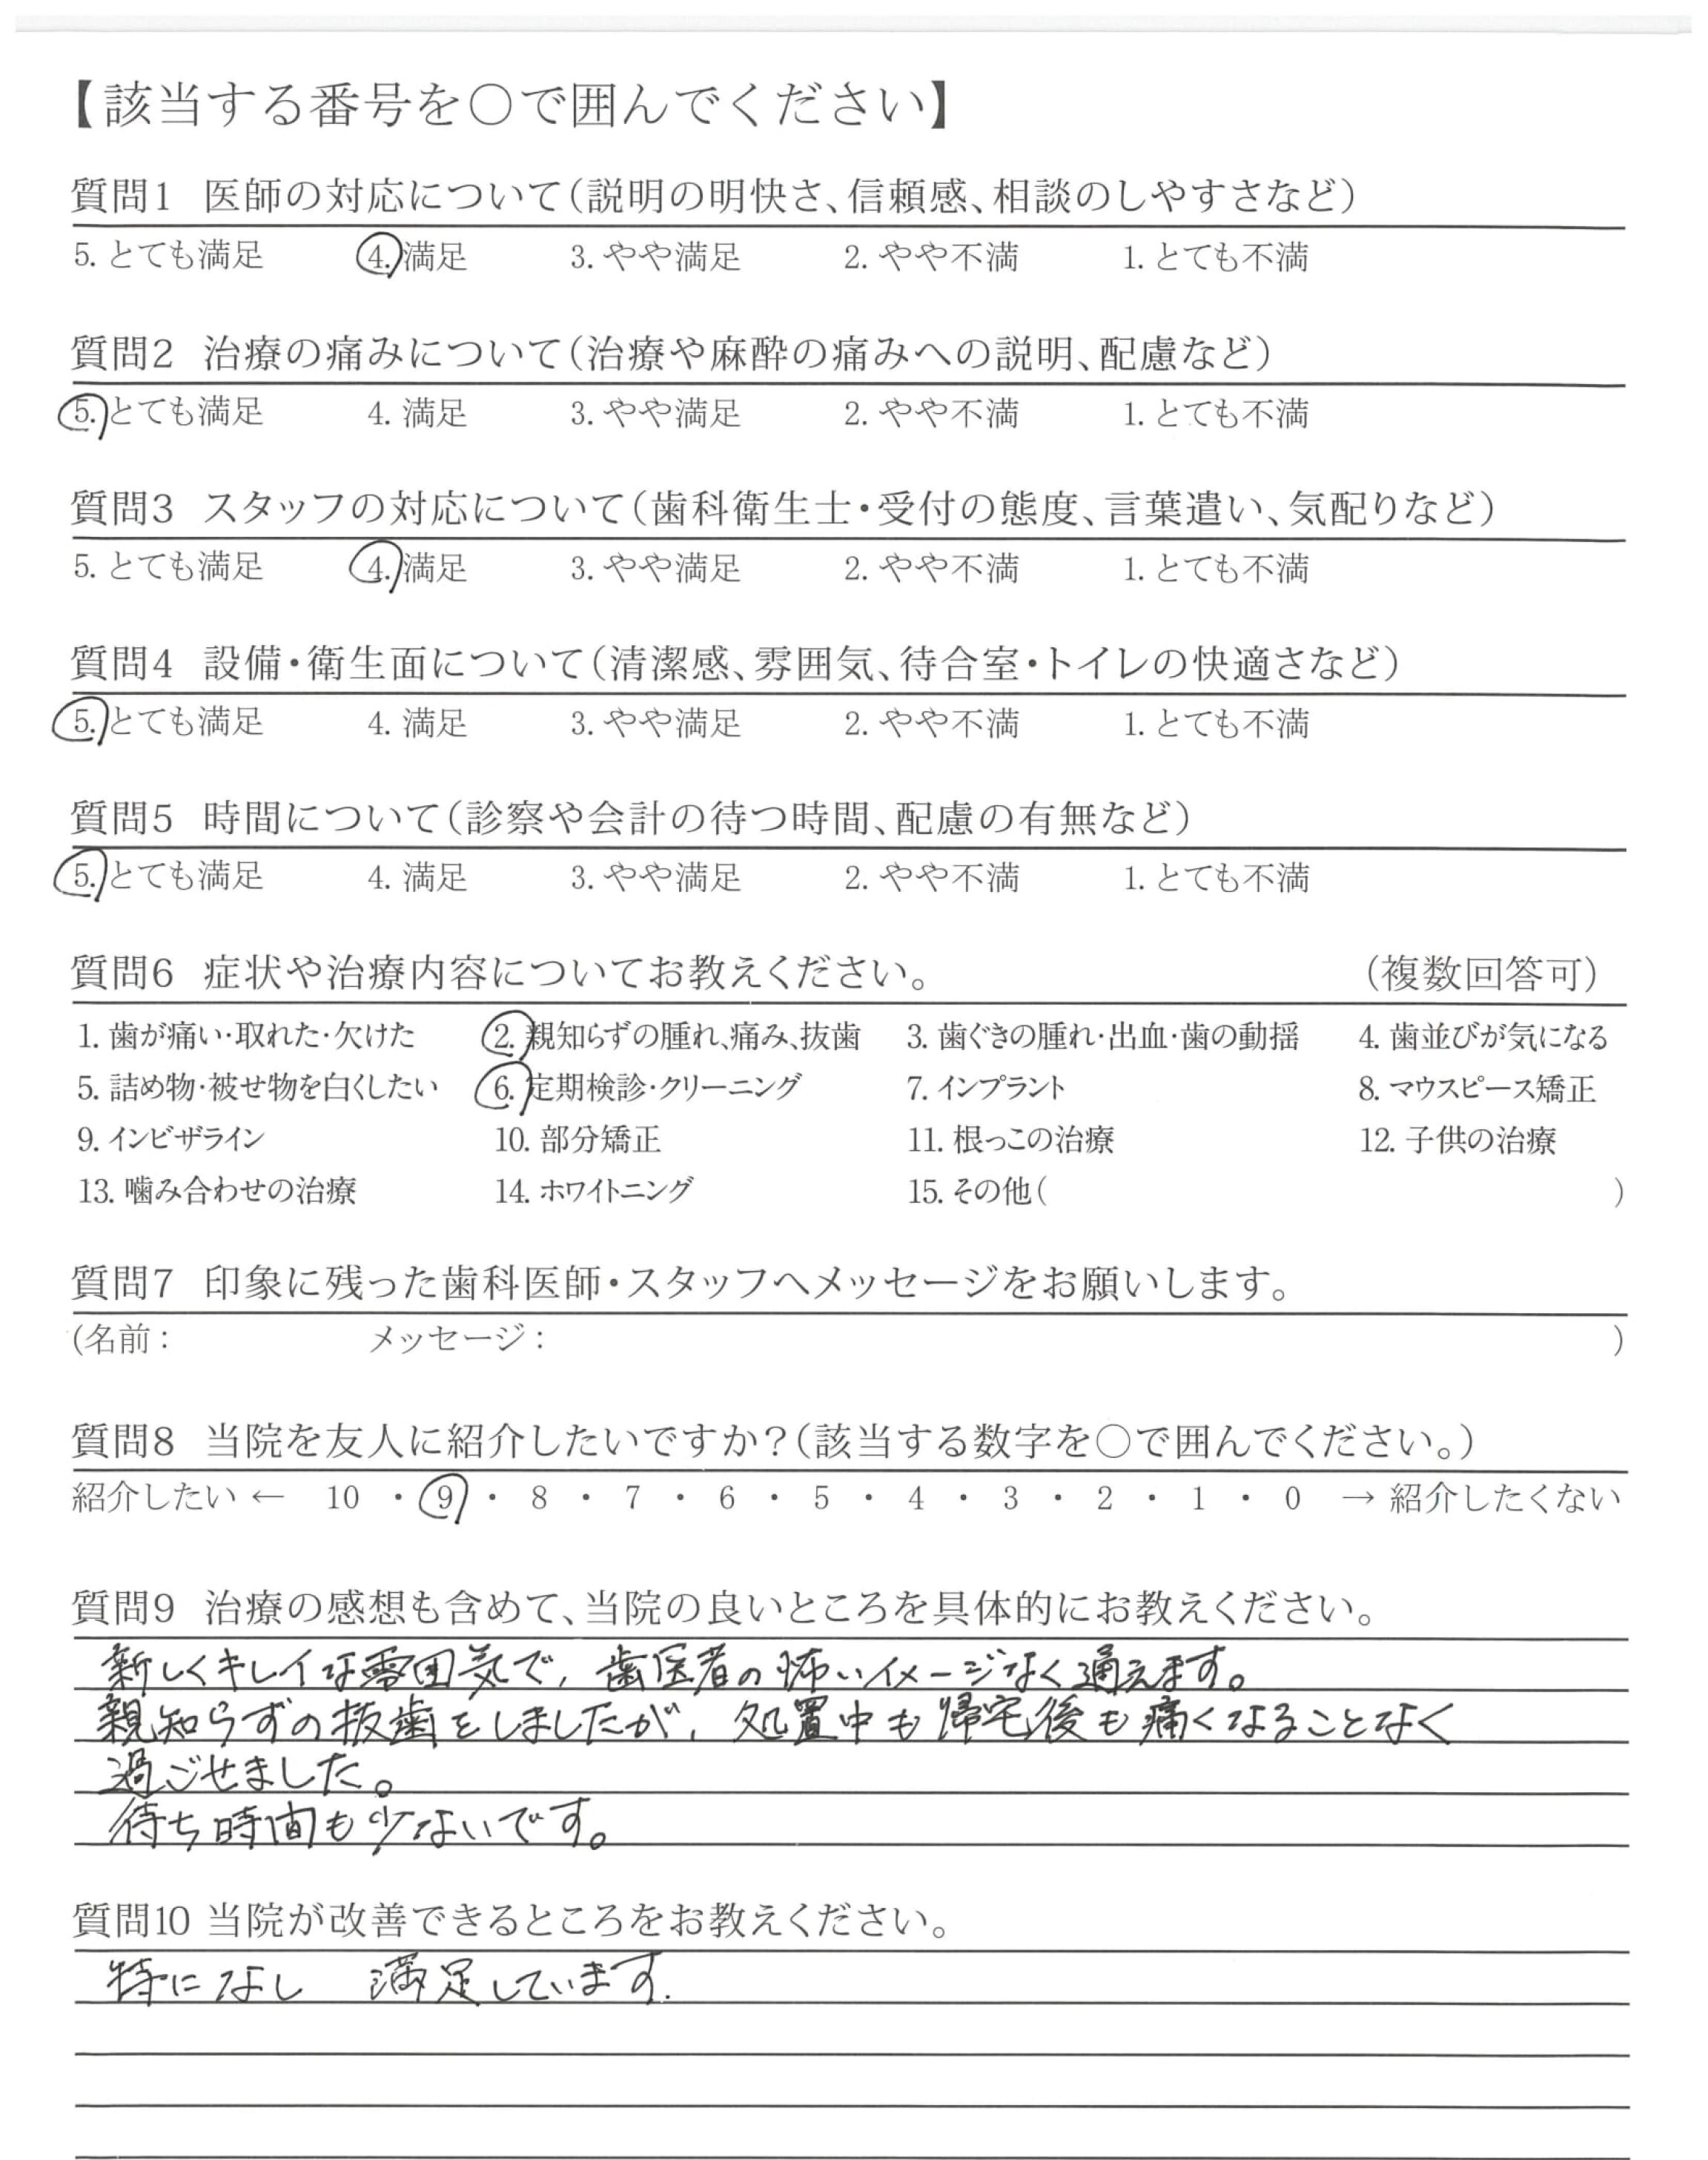 【該当する番号を〇で囲んでください】
質問1 医師の対応について(説明の明快さ、信頼感、相談のしやすさなど)
5. とても満足 4. 満足 3. やや満足 2. やや不満 1. とても不満
質問2 治療の痛みについて(治療や麻酔の痛みへの説明、配慮など)
5. とても満足 4. 満足 3. やや満足 2. やや不満 1. とても不満
質問3 スタッフの対応について(歯科衛生士・受付の態度、言葉遣い、気配りなど)
5. とても満足 4. 満足 3. やや満足 2. やや不満 1. とても不満
質問4 設備・衛生面について(清潔感、雰囲気、待合室・トイレの快適さなど)
5. とても満足 4. 満足 3. やや満足 2. やや不満 1. とても不満
質問5 時間について(診察や会計の待つ時間、配慮の有無など)
5. とても満足 4. 満足 3. やや満足 2. やや不満 1. とても不満
質問6 症状や治療内容についてお教えください。 (複数回答可)
1. 歯が痛い・取れた・欠けた 2. 親知らずの腫れ、痛み、抜歯 3. 歯ぐきの腫れ・出血・歯の動揺 4. 歯並びが気になる
5. 詰め物・被せ物を白くしたい 6. 定期検診・クリーニング 7. インプラント 8. マウスピース矯正
9. インビザライン 10. 部分矯正 11. 根っこの治療 12. 子供の治療
13. 噛み合わせの治療 14. ホワイトニング 15. その他( )
質問7 印象に残った歯科医師・スタッフへメッセージをお願いします。
(名前: メッセージ: )
質問8 当院を友人に紹介したいですか?(該当する数字を〇で囲んでください。)
紹介したい ← 10 ・ 9 ・ 8 ・ 7 ・ 6 ・ 5 ・ 4 ・ 3 ・ 2 ・ 1 ・ 0 → 紹介したくない
質問9 治療の感想も含めて、当院の良いところを具体的にお教えください。
新しくキレイな雰囲気で、歯医者の怖いイメージなく通えます。
親知らずの抜歯をしましたが、処置中も帰宅後も痛くなることなく
過ごせました。
待ち時間も少ないです。
質問10 当院が改善できるところをお教えください。
特になし 満足しています.